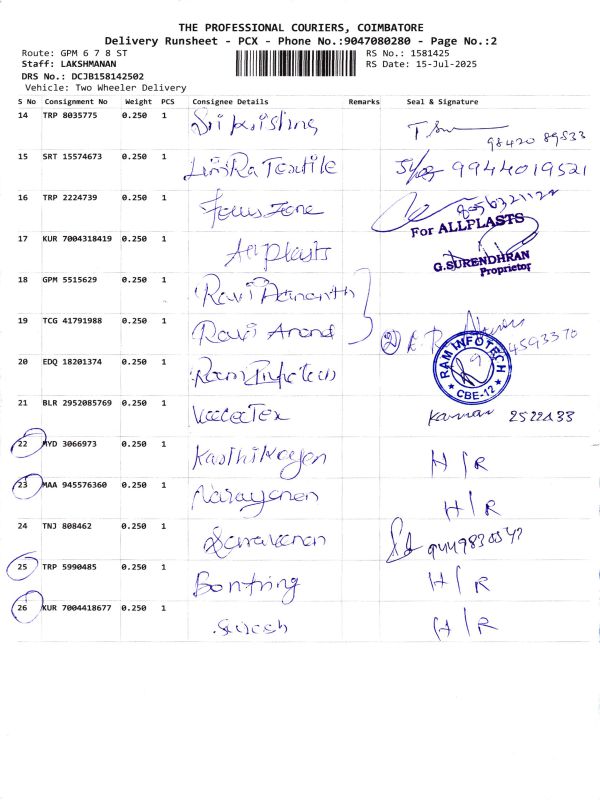 THE PROFESSIONAL COURIERS, COIMBATORE
Delivery Runsheet - PCX - Phone No.:9047080280 - Page No.:2
Route: GPM 6 7 8 ST RS No.: 1581425
Staff: LAKSHMANAN RS Date: 15-Jul-2025
DRS No.: DCJB158142502
Vehicle: Two Wheeler Delivery
S No Consignment No Weight PCS Consignee Details Remarks Seal & Signature
14 TRP 8035775 0.250 1
98420 89533
15 SRT 15574673 0.250 1 Textile 9944019521
16 TRP 2224739 0.250 1 Focus Zone
For ALLPLASTS
17 KUR 7004318419 0.250 1 All plasts
G.SURENDHRAN
Proprietor
18 GPM 5515629 0.250 1 Ravi
19 TCG 41791988 0.250 1 Ravi Anand 2
20 EDQ 18201374 0.250 1 Ram Infotech
RAM INFOTECH
* CBE-12 *
21 BLR 2952085769 0.250 1 Tex 2522433
22 HYD 3066973 0.250 1 Karthikeyen H/R
23 MAA 945576360 0.250 1 Narayanen H/R
24 TNJ 808462 0.250 1 Saravanan
25 TRP 5990485 0.250 1 Bontring H/R
26 KUR 7004418677 0.250 1 Suresh H/R